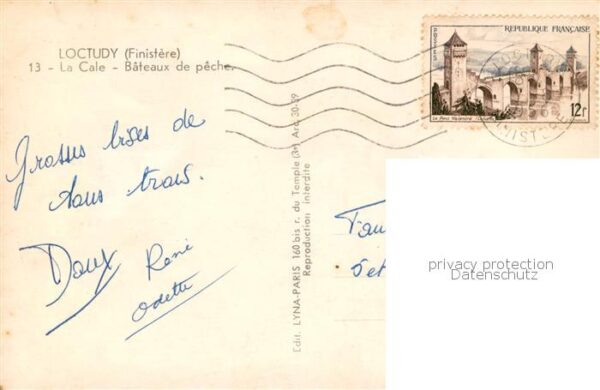 LOCTUDY (Finistère)
13 - La Cale - Bâteaux de pêche.
Grosses bises de
tous trois.
Doux René
Odette
Edit. LYNA-PARIS 160 bis r. du Temple (3e) Arc 30-39
Reproduction interdite
REPUBLIQUE FRANÇAISE
POSTES
Le Pont Valentré
12F
privacy protection
Datenschutz